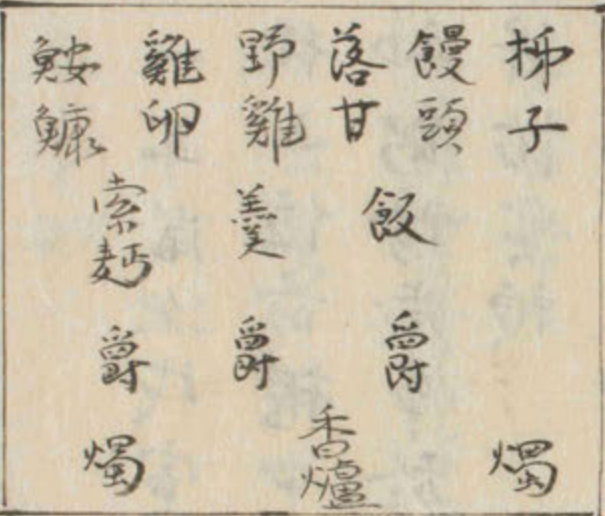 柹子
饅頭
落甘
野雞
雞卵
鮟鱇
飯
羹
索麪
爵
爵
爵
燭
香爐
燭